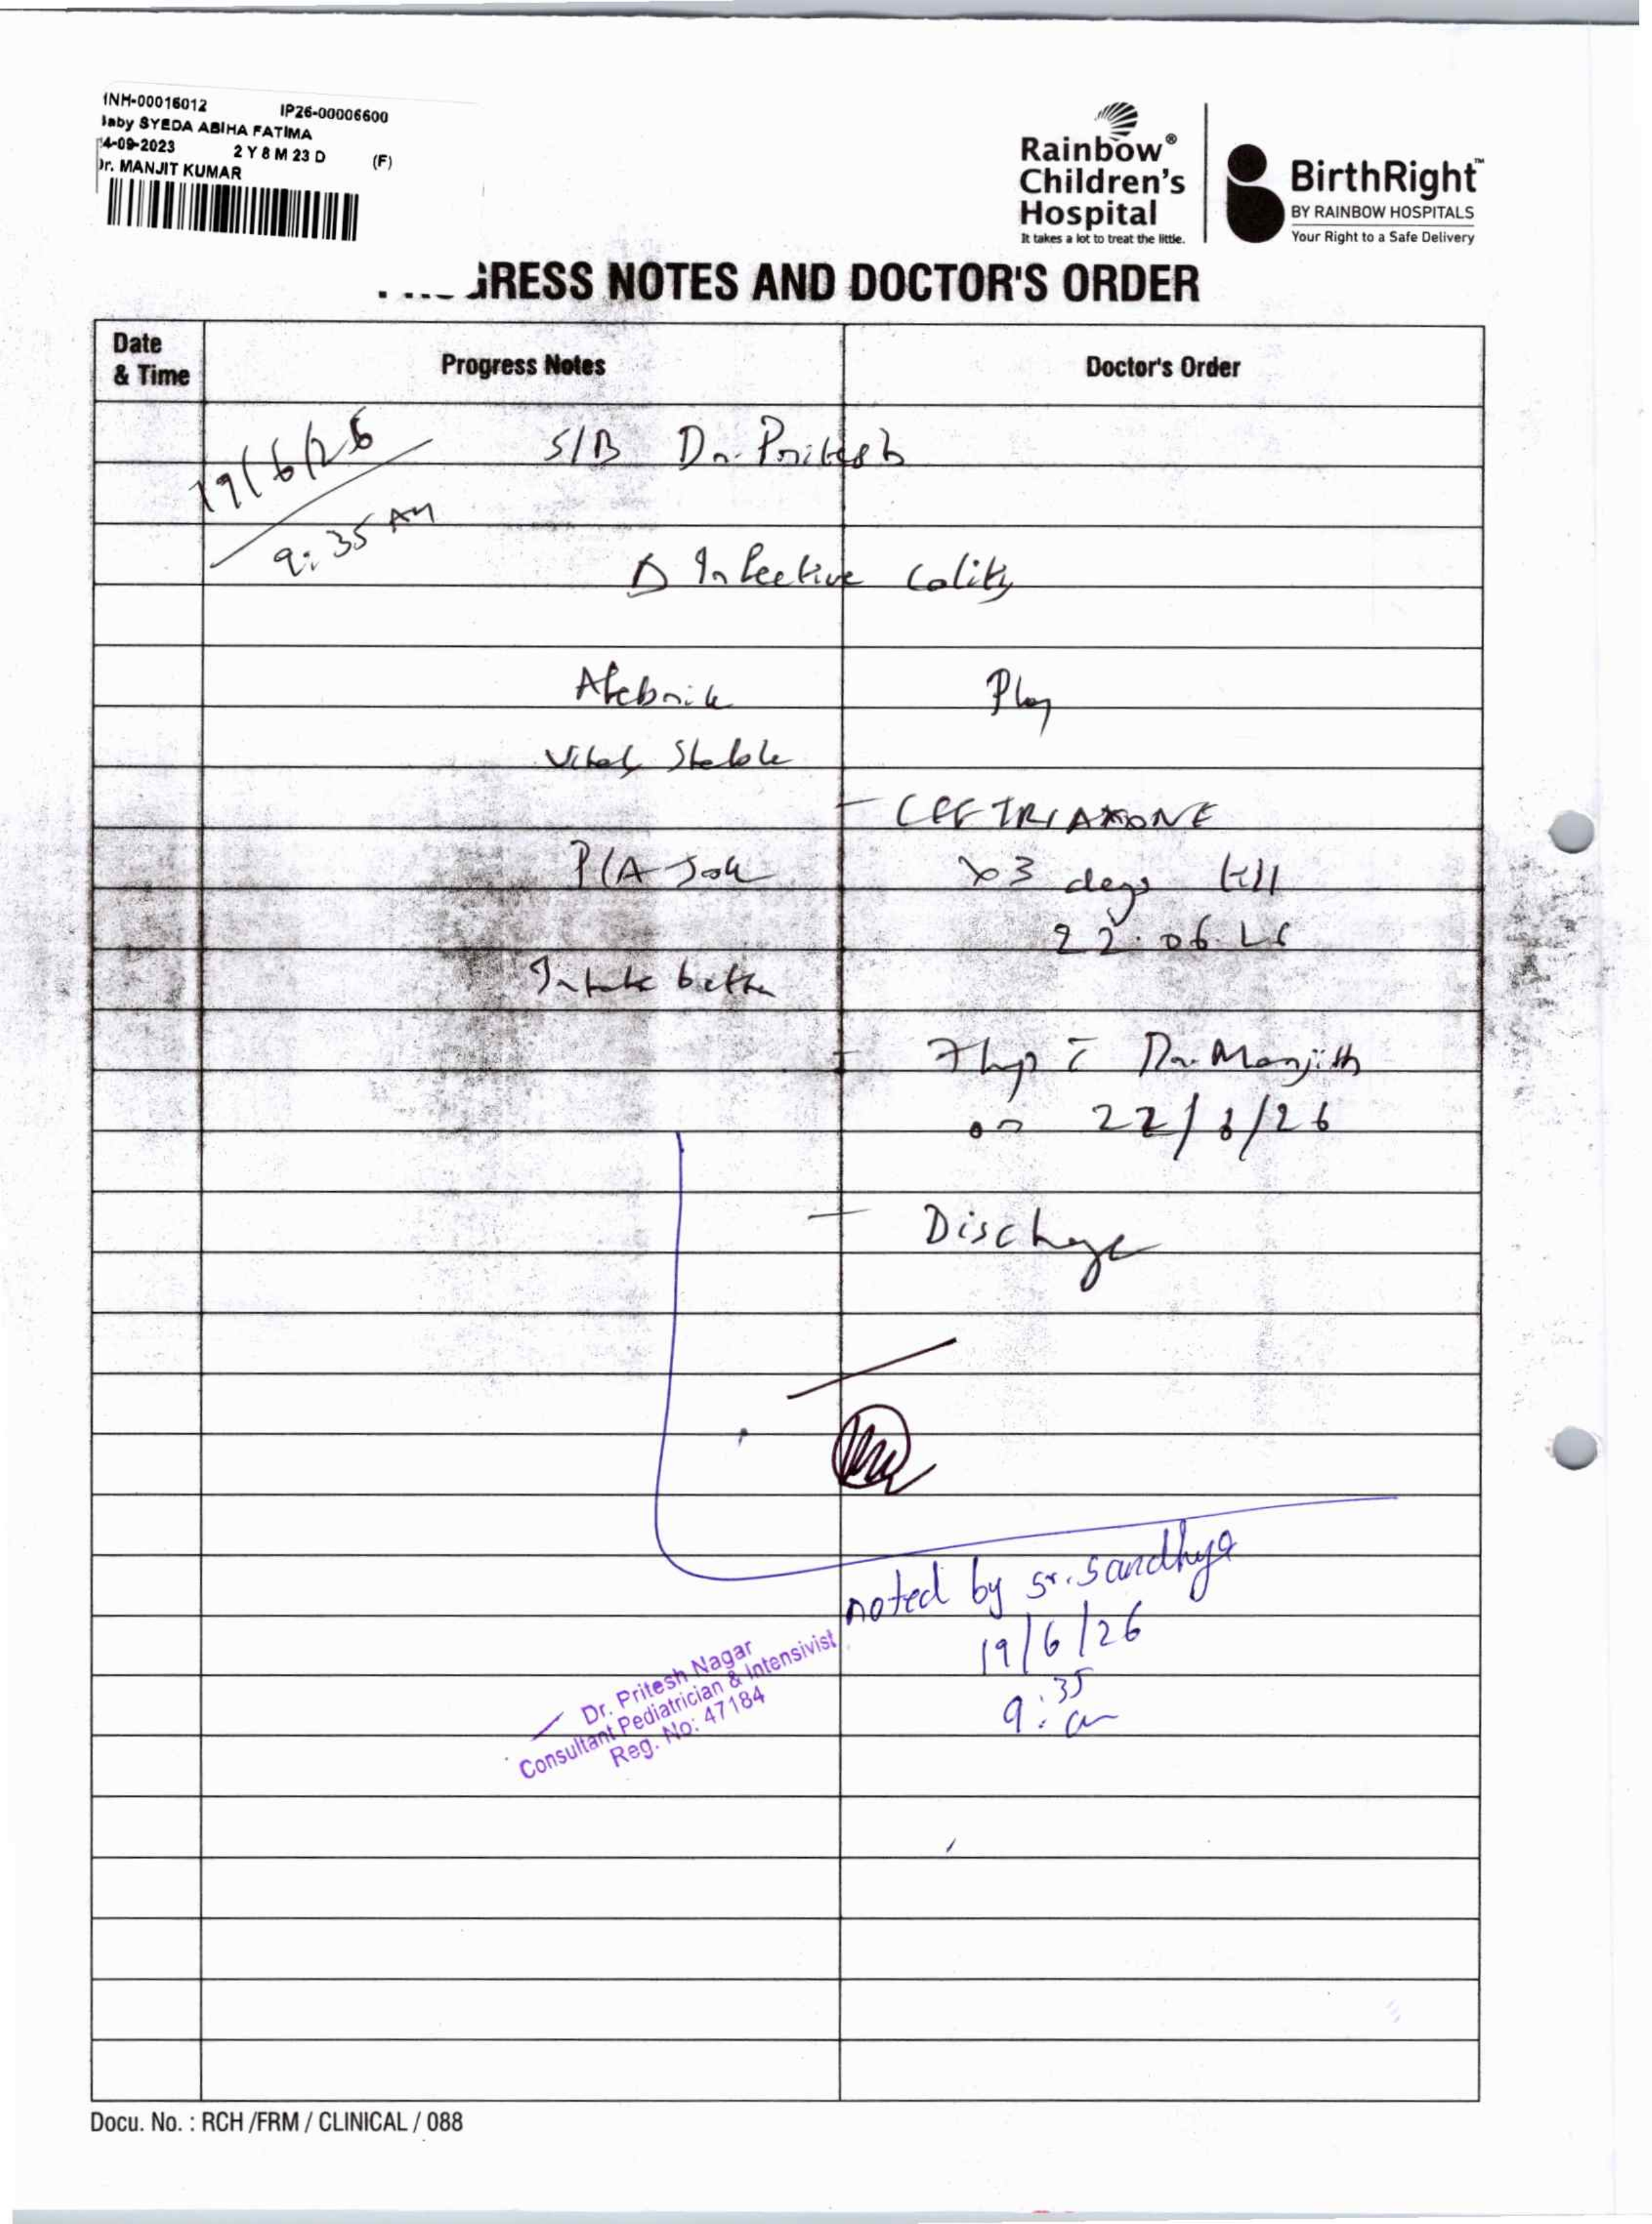 INH-00016012 IP26-00006600
Baby SYEDA ABIHA FATIMA
4-09-2023 2 Y 8 M 23 D (F)
Dr. MANJIT KUMAR
Rainbow®
Children's
Hospital
It takes a lot to treat the little.
BirthRight™
BY RAINBOW HOSPITALS
Your Right to a Safe Delivery
GRESS NOTES AND DOCTOR'S ORDER
Date & Time Progress Notes Doctor's Order
19/6/26
9:35 AM
S/B Dr. Pritesh
Δ Infective Colitis
Afebrile Plan
Vitals Stable
- CEFTRIAXONE
P/A Soft x3 days till
22.06.26
Intake better
- Flup c̄ Dr. Manjith
on 22/6/26
- Discharge
noted by sr. Sandhya
19/6/26
9:35 am
Dr. Pritesh Nagar
Consultant Pediatrician & Intensivist
Reg. No: 47184
Docu. No. : RCH /FRM / CLINICAL / 088